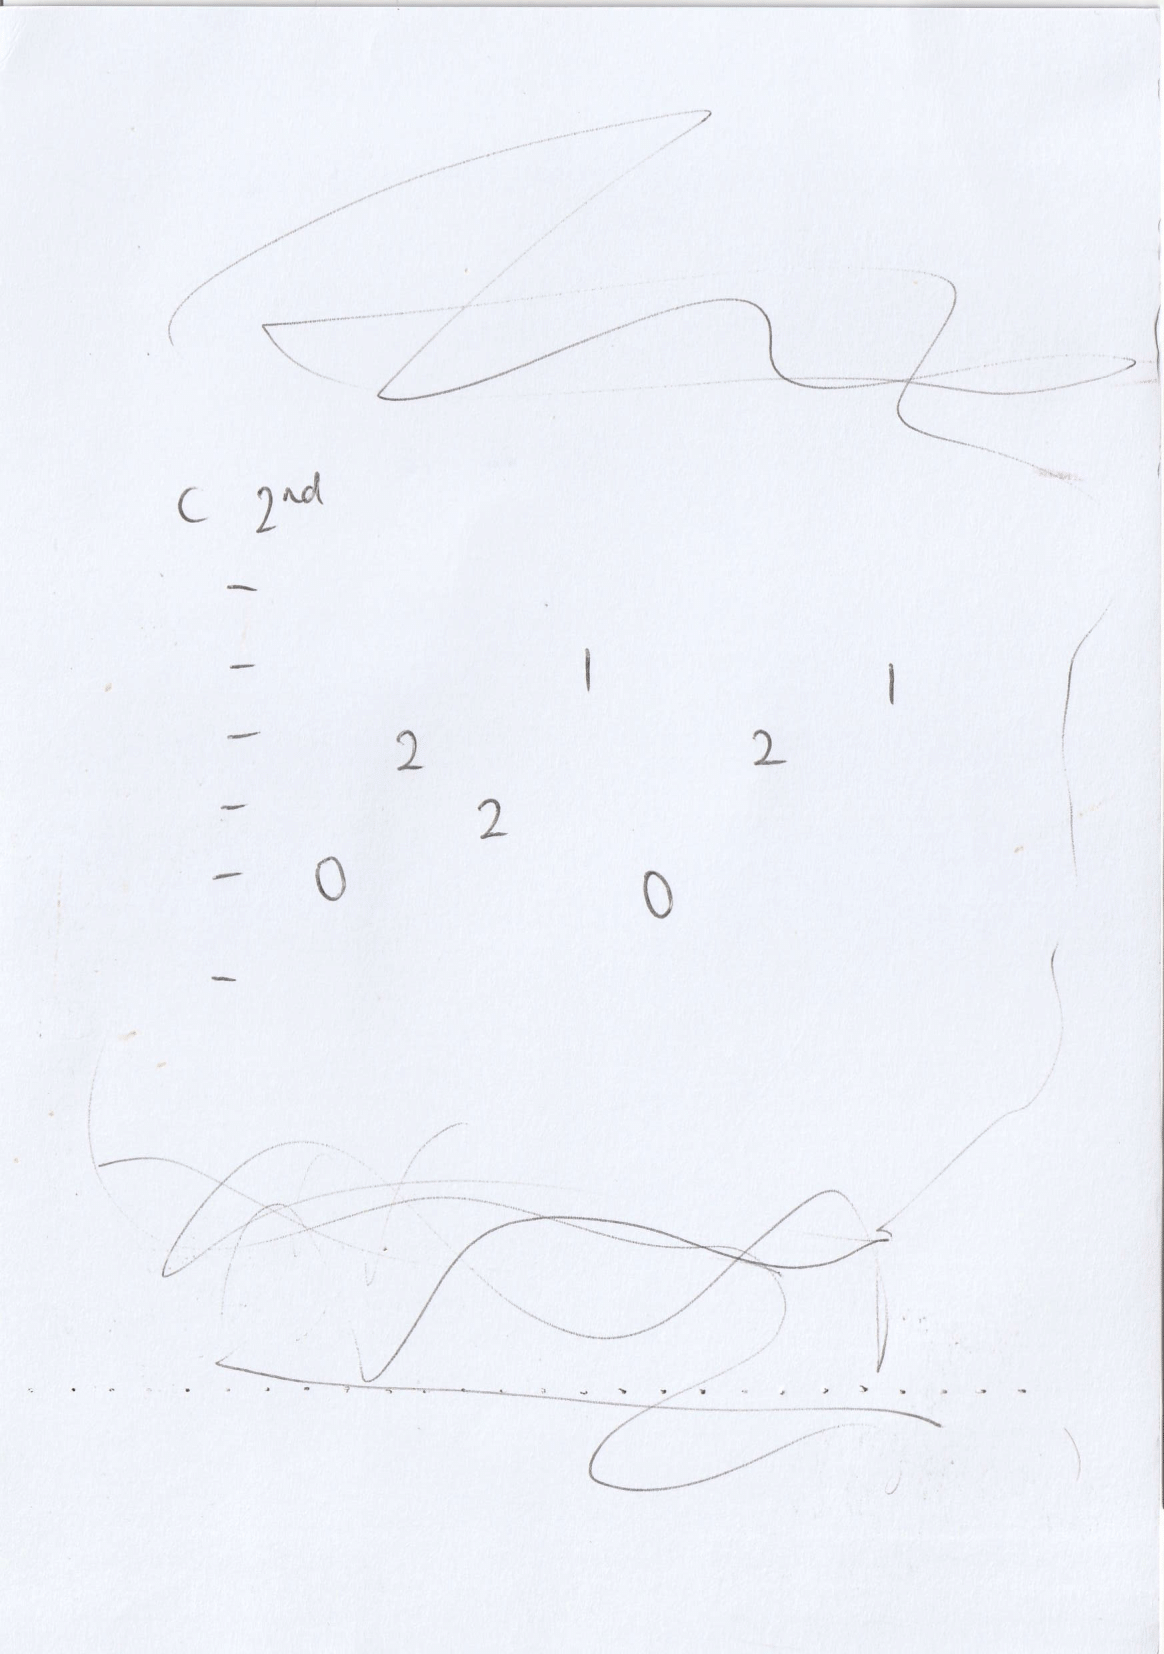 C 2nd
-
- 1 1
- 2 2
- 2
- 0 0
-